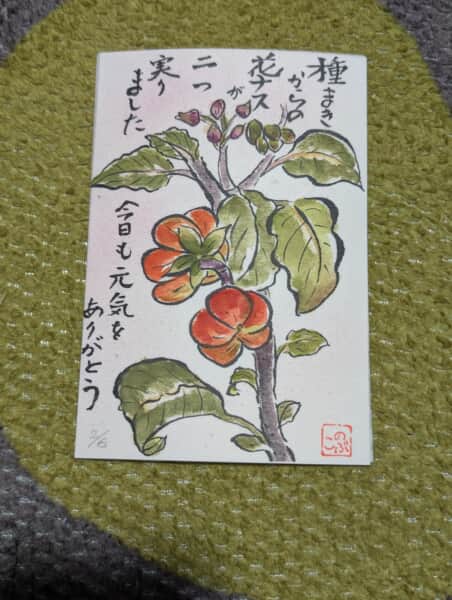 種まき
からの
花ナス
が
二つ
実り
ました
今日も元気を
ありがとう
のぶこ